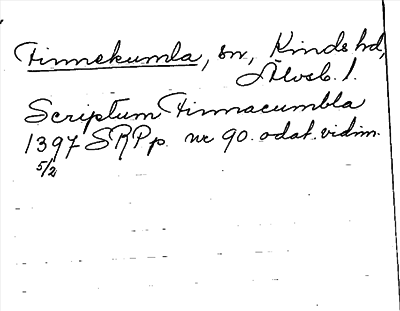 Finnekumla, sn, Kinds hd,
Älvsb. l.
Scriptum Finnacumbla
1397 SRPp. nr 90. odat. vidim.
5/2